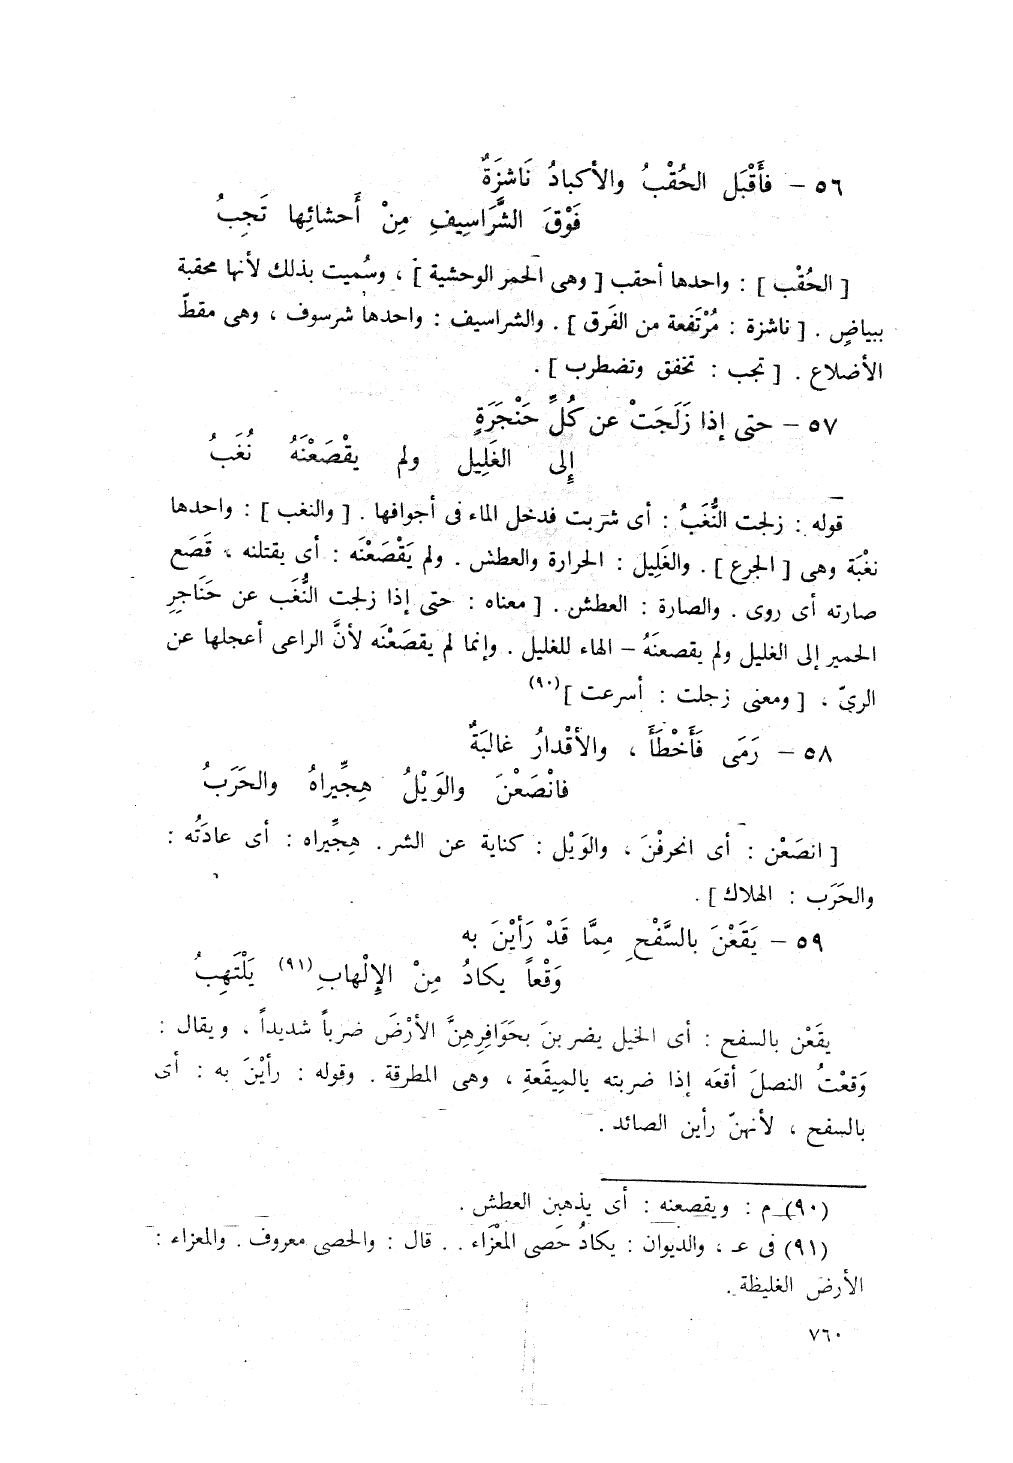 ٥٦ – فأَقْبَل الحُقْبُ والأكبادُ نَاشزَةٌ
فَوْقَ الشَّرَاسِيفِ مِنْ أَحشائِها تَجِبُ
[ الحُقْب ] : واحدها أحقب [ وهى الحمر الوحشية ] ، وسُميت بذلك لأنها محقبة
ببياضٍ . [ ناشزة : مُرْتَفعة من الفَرق ] . والشراسيف : واحدها شرسوف ، وهى مقطّ
الأضلاع . [ تجب : تخفق وتضطرب ] .
٥٧ – حتى إذا زَلَجَتْ عن كُلِّ حَنْجَرَةٍ
إِلى الغَلِيل ولم يقْصَعْنَهُ نُغَبُ
قوله : زلجت النُّغَبُ : أى شربت فدخل الماء فى أجوافها . [ والنغب ] : واحدها
نغْبَة وهى [ الجرع ] . والغَلِيل : الحرارة والعطش . ولم يَقْصَعْنَه : أى يقتلنه ، قَصَع
صارته أى روى . والصارة : العطش . [ معناه : حتى إذا زلجت النُّغَب عن حَنَاجرِ
الحمير إلى الغليل ولم يقصعنَهُ – الهاء للغليل . وإنما لم يقصَعْنَه لأنَّ الراعى أعجلها عن
الريّ ، [ ومعنى زجلت : أسرعت ](٩٠)
٥٨ – رَمَى فَأَخْطَأَ ، والأقْدارُ غالبَةٌ
فانْصَعْنَ والوَيْلُ هِجِّيراهُ والحَرَبُ
[ انصَعْن : أى انحرفْنَ ، والوَيْل : كناية عن الشر . هِجِّيراه : أى عادَتُه :
والحَرَب : الهلاك ] .
٥٩ – يَقَعْنَ بالسَّفْحِ مِمَّا قَدْ رَأيْنَ به
وَقْعاً يكادُ مِنْ الإِلْهابِ(٩١) يَلْتَهِبُ
يقَعْن بالسفح : أى الخيل يضربنَ بحَوَافِرِهِنَّ الأرْضَ ضرباً شديداً ، ويقال :
وَقعْتُ النصلَ أقعَه إذا ضربته بالمِيقَعةِ ، وهى المطرقة . وقوله : رأيْنَ به : أى
بالسفح ، لأنهنّ رأين الصائد .
(٩٠) م : ويقصعنه : أى يذهبن العطش .
(٩١) فى عـ ، والديوان : يكادُ حَصى المعْزَاء . . قال : والحصى معروف . والمعزاء :
الأرض الغليظة .
٧٦٠